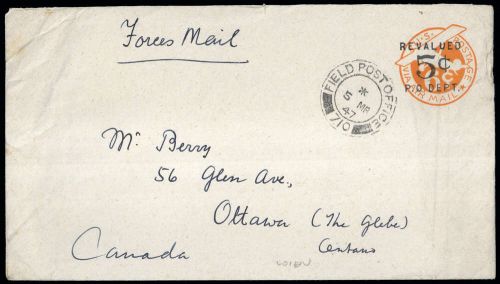 Forces Mail
U.S. POSTAGE
REVALUED
5¢
P.O. DEPT.
VIA AIR MAIL
FIELD POST OFFICE
*
5 MR
47
Mr Berry
56 Glen Ave.,
Ottawa (The Glebe)
Ontario
Canada